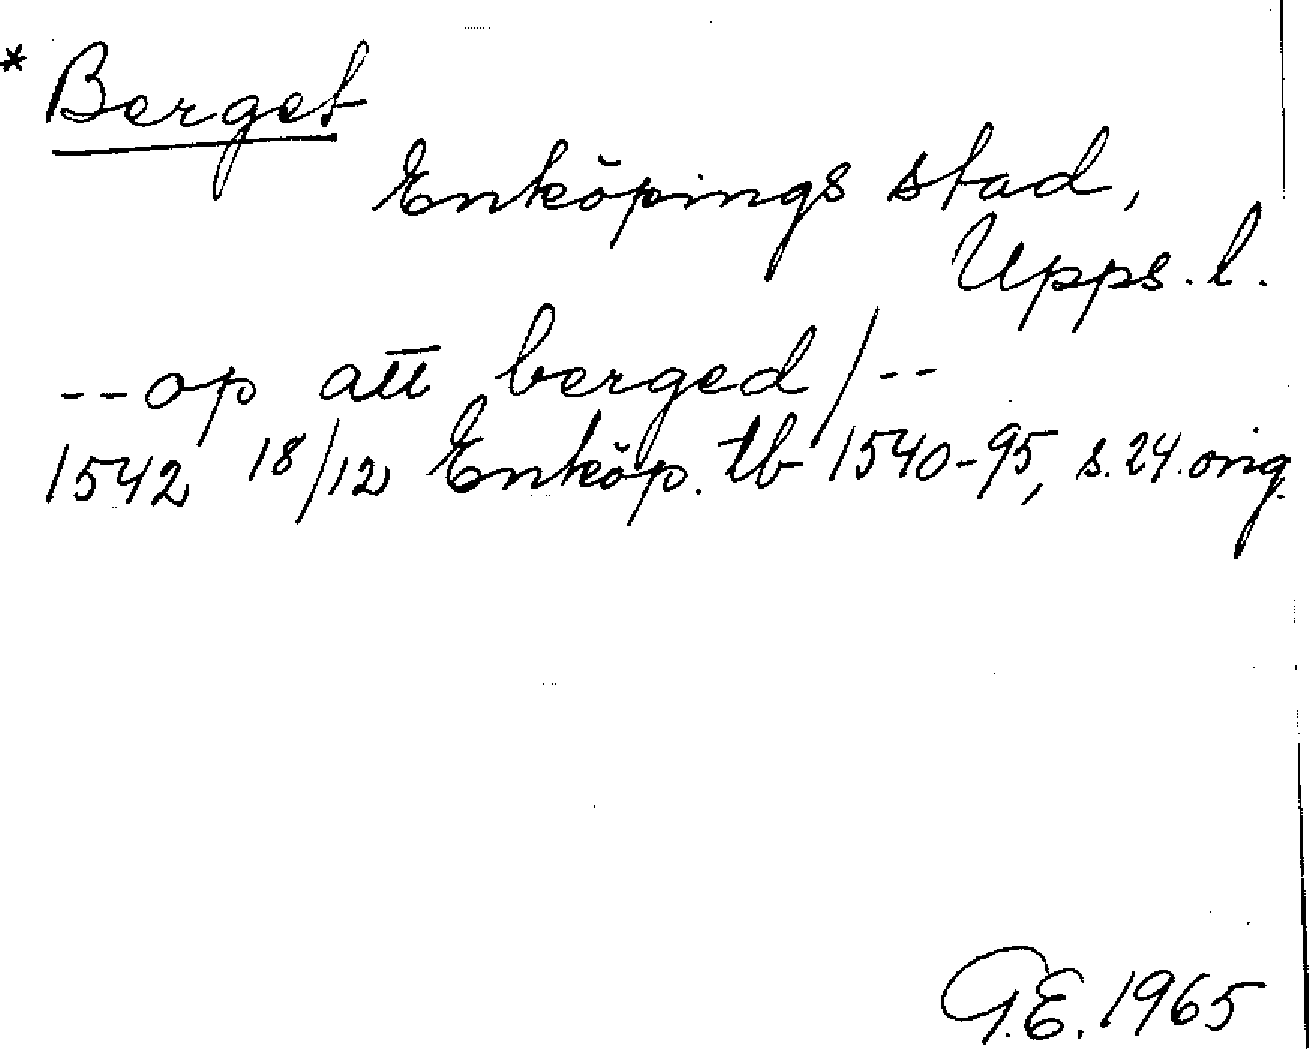 * Berget
Enköpings stad,
Upps. l.
--op att berged/--
1542 18/12 Enköp. tb 1540-95, s. 24. orig.
G.E. 1965